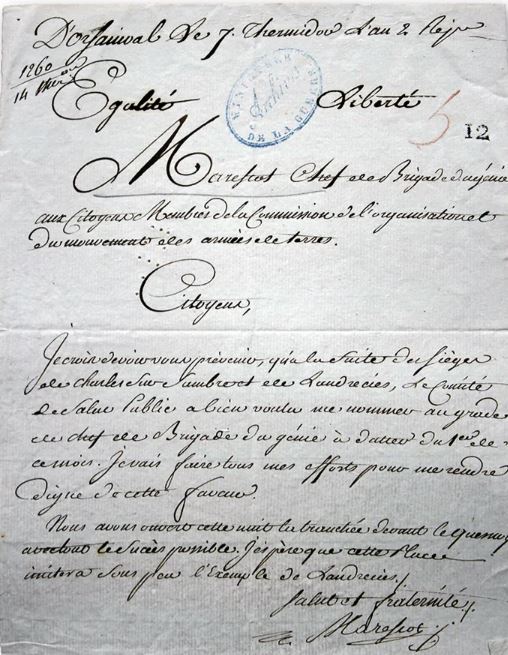 D'orsainval Le 7. Thermidor L'an 2. Rep
1260
14 Ther
Egalité Liberté
MINISTÈRE DE LA GUERRE
Archives
5
12
Marescot Chef de Brigade du génie
aux Citoyens Membres de la Commission de l'organisation et
du mouvement des armées de terres.
Citoyens,
Je crois devoir vous prévenir, qu'à la suite des sièges
de Charles Sur Sambre et de Landrecies, Le Comité
de Salut Public a bien voulu me nommer au grade
de chef de Brigade du génie à datter du 1er de
ce mois. Je vais faire tous mes efforts pour me rendre
digne de cette faveur.
Nous avons ouvert cette nuit la tranchée devant le Quesnoy
avec tout le succès possible. J'espère que cette Place
imitera sous peu l'Exemple de Landrecies./.
Salut et fraternité/.
Marescot